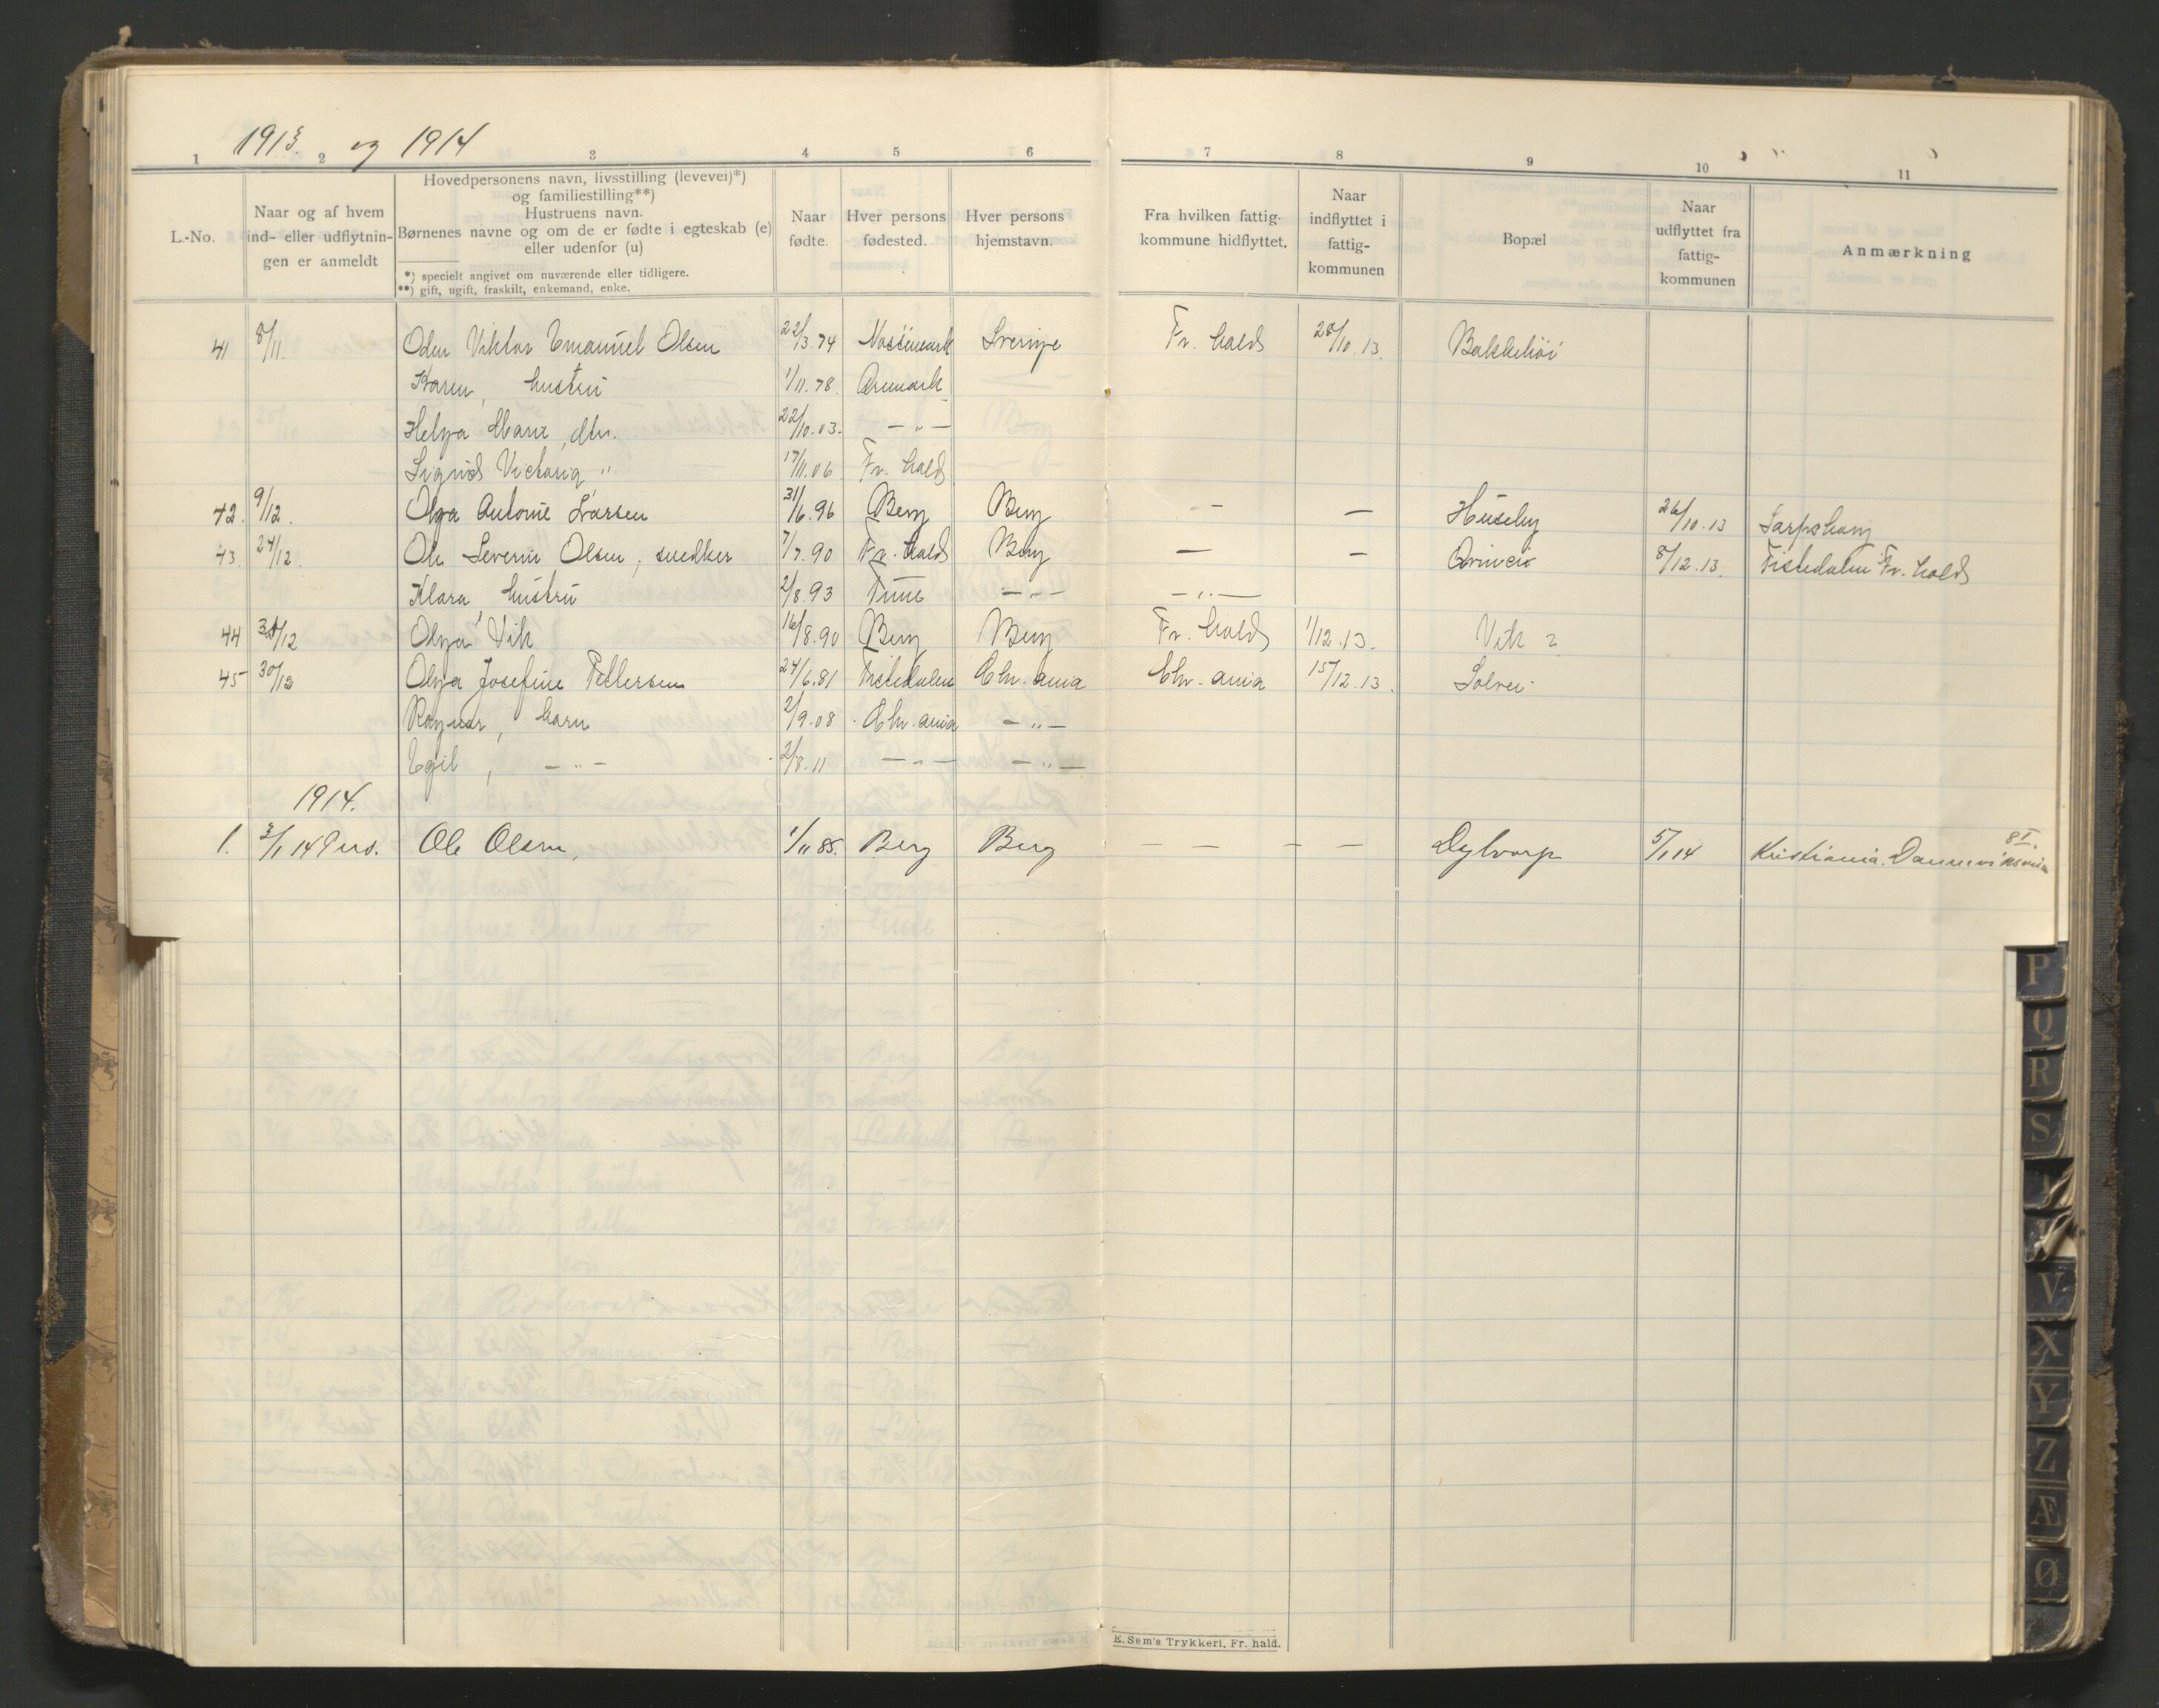 1913. og 1914
1 2 3 4 5 6 7 8 9 10 11
L.-No.
Naar og af hvem ind- eller udflytnin-gen er anmeldt
Hovedpersonens navn, livsstilling (levevei)*)
og familiestilling**)
Hustruens navn.
Børnenes navne og om de er fødte i egteskab (e)
eller udenfor (u)
*) specielt angivet om nuværende eller tidligere.
**) gift, ugift, fraskilt, enkemand, enke.
Naar fødte.
Hver persons fødested.
Hver persons hjemstavn.
Fra hvilken fattig-kommune hidflyttet.
Naar indflyttet i fattig-kommunen
Bopæl
Naar udflyttet fra fattig-kommunen
Anmærkning
41 8/11. Oden Viktor Emanuel Olsen 22/3.74 Sverige Fr. hald 28/10.13. Bakkehöi
Karen, hustru 1/11.78 Aremark
Helga Marie, dtr. 22/10.03. — " —
Sigrid Victoria " 17/11.06 Fr. hald
42. 9/12. Olga Antonie Larsen 31/6.96 Berg Berg — — Huseby 26/10.13 Sarpsborg
43. 24/12. Ole Severin Olsen, snedker 7/7.90 Fr. hald Berg — — 8/12.13. Tistedalen Fr. hald
Klara hustru 2/8.93 Tune — " — — " —
44 /12 Olga Vik 16/8.90 Berg Berg Fr. hald 1/12.13. Vik ?
45 30/12 Olga Josefine Pettersen 24/6.81 Tistedalen Chr.ania Chr.ania 15/12.13. Solvei
Ragnar, barn 2/9.08 Chr.ania — " —
Egil, — " — 2/8.11 — " — — " —
1914.
1. 3/1 14 Pers. Ole Olsen, 1/11 85. Berg Berg — — — — Dyltorp 5/1 14 Kristiania.
E. Sem's Trykkeri, Fr. hald.
P
Q
R
S
V
X
Y
Z
Æ
Ø